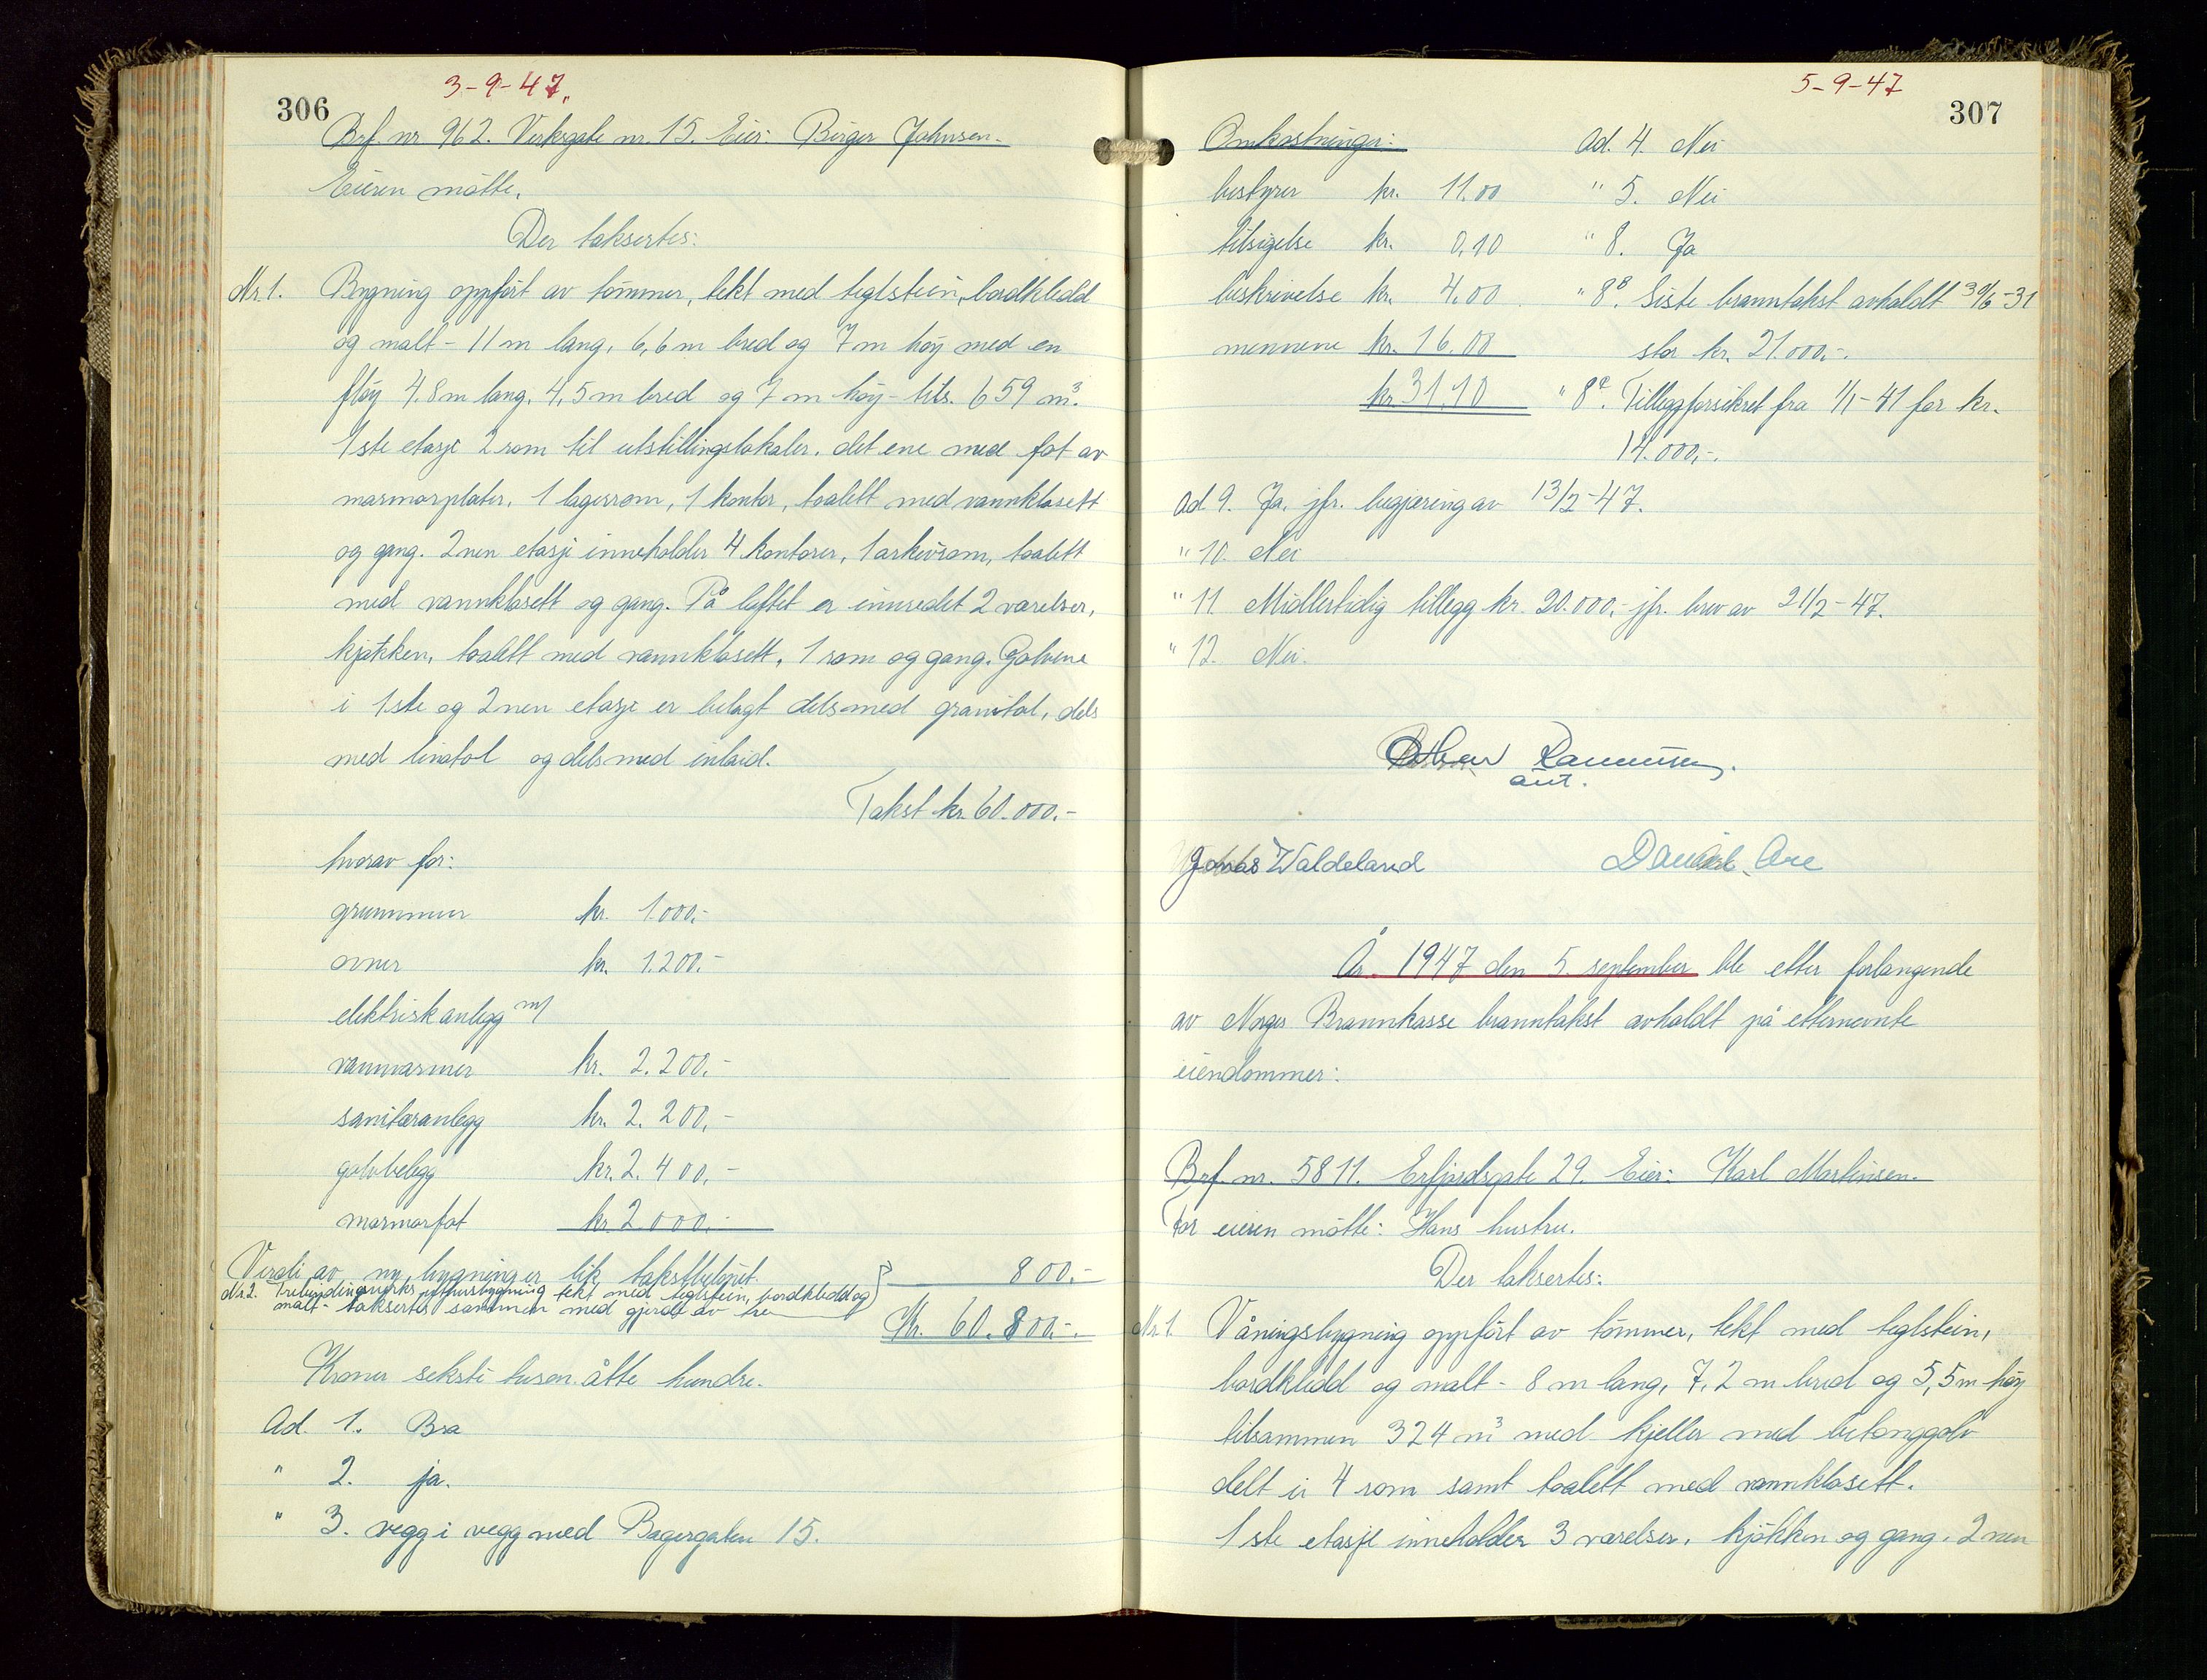 3-9-47.
306
Brf. nr. 962. Verksgate nr. 15. Eier: Birger Johnsen.
Eieren møtte.
Der taksertes:
Nr. 1. Bygning oppført av tømmer, tekt med teglstein, bordkledd
og malt - 11 m lang, 6,6 m bred og 7 m høy med en
fløy 4,8 m lang, 4,5 m bred og 7 m høy - tils. 659 m³.
1ste etasje 2 rom til utstillingslokaler, det ene med fot av
marmorplater, 1 lagerrom, 1 kontor, toalett med vannklosett
og gang. 2nen etasje inneholder 4 kontorer, 1 arkivrom, toalett
med vannklosett og gang. På loftet er innredet 2 værelser,
kjøkken, toalett med vannklosett, 1 rom og gang. Golvene
i 1ste og 2nen etasje er belagt dels med granitol, dels
med linotol og dels med inlaid.
Takst kr. 60.000.-
hvorav for:
grunnmur kr. 1.000.-
ovner kr. 1.200.-
elektrisk anlegg m/
vannvarmer kr. 2.200.-
sanitæranlegg kr. 2.200.-
golvbelegg kr. 2.400.-
marmorfot kr. 2000.-
Verdi av ny bygning er lik takstbeløpet.
Nr. 2. Trebindingverks uthusbygning tekt med teglstein, bordkledd og
malt - taksertes sammen med gjerde av tre 800.-
Kr. 60.800.-.
Kroner seksti tusen åtte hundre.
Ad. 1. Bra
" 2. ja.
" 3. vegg i vegg med Bagergaten 15.
5-9-47
307
Omkostninger:
bestyrer kr. 11.00
tilsigelse kr. 0,10
beskrivelse kr. 4.00
mennene kr. 16.00
kr. 31.10
Ad. 4. Nei
" 5. Nei
" 8. Ja
" 8ᴮ. Siste branntakst avholdt 30/6-31
stor kr. 21.000.-.
" 8ᶜ. Tilleggsforsikret fra 1/1-41 for kr.
14.000.-.
Ad 9. Ja, jfr. begjæring av 13/2-47.
" 10. Nei
" 11. Midlertidig tillegg kr. 20.000.- jfr. brev av 21/2-47.
" 12. Nei.
Rasmussen
Jonas Waldeland
Daniel
År 1947 den 5. september ble etter forlangende
av Norges Brannkasse branntakst avholdt på etternevnte
eiendommer:
Brf. nr. 5811. Erfjordsgate 29. Eier: Karl Martinsen.
For eieren møtte: Hans hustru.
Der taksertes:
Nr. 1. Våningsbygning oppført av tømmer, tekt med teglstein,
bordkledd og malt - 8 m lang, 7,2 m bred og 5,5 m høy
tilsammen 324 m³ med kjeller med betonggolv
delt i 4 rom samt toalett med vannklosett.
1ste etasje inneholder 3 værelser, kjøkken og gang. 2nen